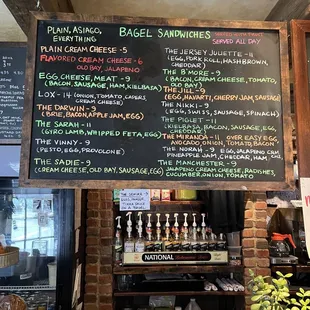 PLAIN, ASIAGO,
EVERYTHING
BAGEL SANDWICHES
SERVED ALL DAY
PLAIN CREAM CHEESE - 5
FLAVORED CREAM CHEESE - 6
OLD BAY, JALAPENO
EGG, CHEESE, MEAT - 9
(BACON, SAUSAGE, HAM, KIELBASA)
LOX - 14 (ONION, TOMATO, CAPERS,
CREAM CHEESE)
THE DARWIN - 9
(BRIE, BACON, APPLE JAM, EGG)
THE SARAH - 11
(GYRO LAMB, WHIPPED FETA, EGG)
THE VINNY - 9
(PESTO, EGG, PROVOLONE)
THE SADIE - 9
(CREAM CHEESE, OLD BAY, SAUSAGE, EGG)
THE JERSEY JULIETTE - 11
(EGG, PORK ROLL, HASHBROWN,
CHEDDAR)
THE B'MORE - 9
(BACON, CREAM CHEESE, TOMATO,
OLD BAY)
THE JILL - 9
(EGG, HAVARTI, CHERRY JAM, SAUSAGE)
THE NIKKI - 9
(EGG, SWISS, SAUSAGE, SPINACH)
THE PIGLET - 11
(KIELBASA, BACON, SAUSAGE, EGG,
CHEDDAR)
THE MIRANDA - 11 OVER EASY EGG
AVOCADO, ONION, TOMATO, BACON
THE NORAH - 9 EGG, JALAPENO CR
PINEAPPLE JAM, CHEDDAR, HAM
THE MANCHESTER - 9
JALAPENO CREAM CHEESE, RADISHES,
CUCUMBER, ONION, TOMATO
NATIONAL